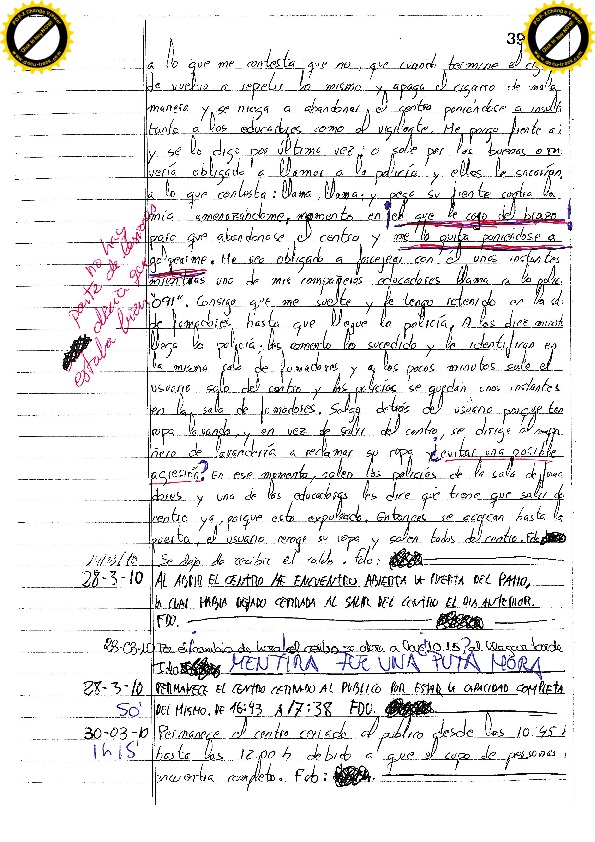 39
a lo que me contesta que no, que cuando termine el
de vuelvo a repetir lo mismo y apaga el cigarro de mala
manera y se niega a abandonar el centro poniéndose a insult
tanto a los educadores como al vigilante. Me pongo frente a
y se lo digo por última vez; o sale por las buenas o m
vería obligado a llamar a la policía y ellos le sacarían,
a lo que contesta: llama, llama; y pega su frente contra la
mía amenazándome, momento en el que le cojo del brazo
para que abandonase el centro y me lo quita poniéndose a
golpearme. Me veo obligado a forcejear con él unos instantes
mientras uno de mis compañeros educadores llama a la polic
"091". Consigo que me suelte y le tengo retenido en la
de fumadores hasta que llegue la policía. A los diez minut
llega la policía; les comento lo sucedido y le identifican en
la misma sala de fumadores y a los pocos minutos sale el
usuario solo del centro y los policías se quedan unos instantes
en la sala de fumadores. Salgo detrás del usuario porque ten
ropa lavando, y en vez de salir del centro, se dirige al
ñero de lavandería a reclamar su ropa y ¿evitar una posible
agresión? En ese momento, salen los policías de la sala de fuma
dores y una de las educadoras les dice que tiene que salir de
centro ya, porque está expulsado. Entonces se acercan hasta la
puerta, el usuario recoge su ropa y salen todos del centro. Fdo
no hay
parte de lesiones
decía que
estaba bien
Se deja de recibir el Fdo:
28-3-10 AL ABRIR EL CENTRO ME ENCUENTRO ABIERTA LA PUERTA DEL PATIO,
LA CUAL HABIA DEJADO CERRADA AL SALIR DEL CENTRO EL DIA ANTERIOR.
FDO.
28-03-10 cambio de hora el centro se abre a las 10:15
MENTIRA FUE UNA PUTA MORA
28-3-10 PERMANECE EL CENTRO CERRADO AL PUBLICO POR ESTAR LA CAPACIDAD COMPLETA
50' DEL MISMO. DE 16:43 A 17:38 FDO.
30-03-10 Permanece el centro cerrado al público desde las 10:45
1h 15' hasta las 12:00 h debido a que el cupo de personas
encuentra completo. Fdo: